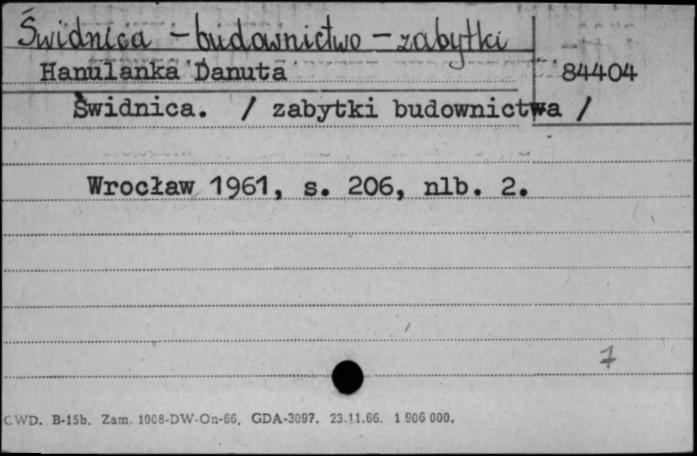 Świdnica - budownictwo - zabytki
Hanulanka Danuta 84404
Świdnica. / zabytki budownictwa /
Wrocław 1961, s. 206, nlb. 2.
7
CWD. B-15b. Zam. 1008-DW-On-66. GDA-3097. 23.11.66. 1 906 000.